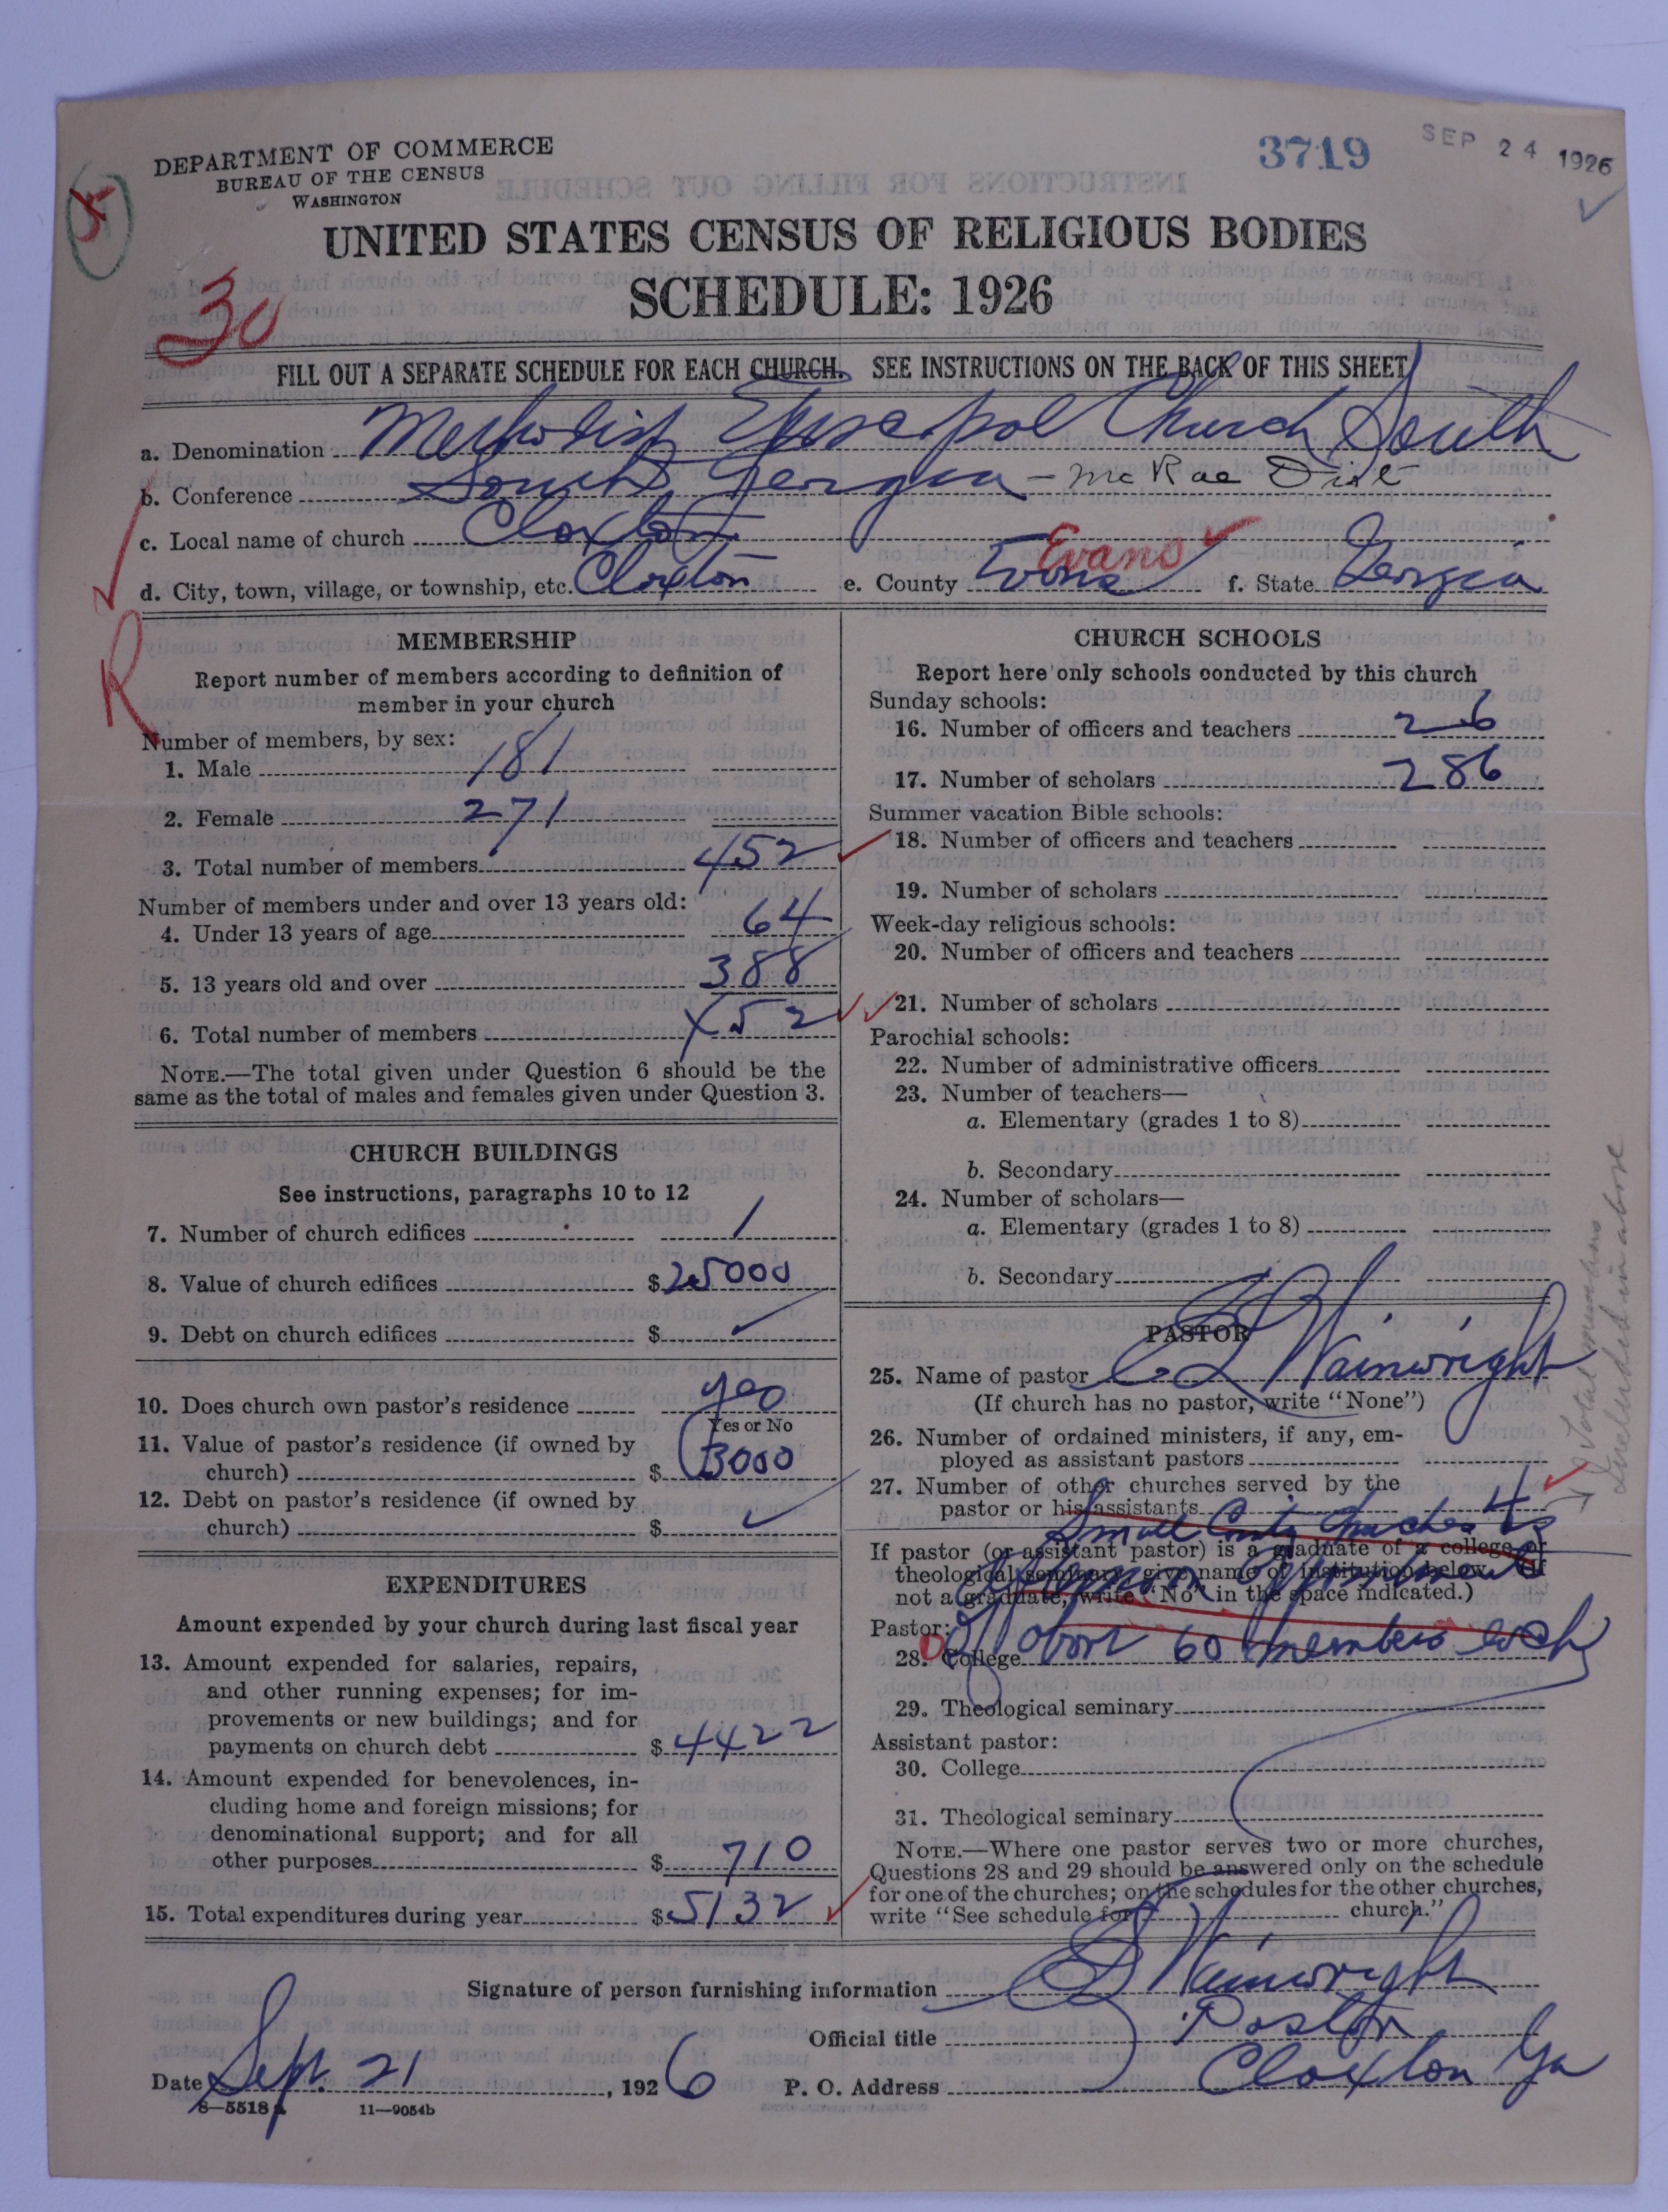 DEPARTMENT OF COMMERCE
BUREAU OF THE CENSUS
WASHINGTON
3719
SEP 24 1926
UNITED STATES CENSUS OF RELIGIOUS BODIES
SCHEDULE: 1926
30
FILL OUT A SEPARATE SCHEDULE FOR EACH CHURCH. SEE INSTRUCTIONS ON THE BACK OF THIS SHEET
a. Denomination Methodist Episcopal Church South
b. Conference South Georgia - McRae Dist
c. Local name of church Claxton
d. City, town, village, or township, etc. Claxton e. County Evans Evans f. State Georgia
R
MEMBERSHIP
Report number of members according to definition of
member in your church
Number of members, by sex:
1. Male 181
2. Female 271
3. Total number of members 452
Number of members under and over 13 years old:
4. Under 13 years of age 64
5. 13 years old and over 388
6. Total number of members 452
NOTE.—The total given under Question 6 should be the
same as the total of males and females given under Question 3.
CHURCH BUILDINGS
See instructions, paragraphs 10 to 12
7. Number of church edifices 1
8. Value of church edifices $25000
9. Debt on church edifices $
10. Does church own pastor's residence yes
Yes or No
11. Value of pastor's residence (if owned by
church) $3000
12. Debt on pastor's residence (if owned by
church) $
EXPENDITURES
Amount expended by your church during last fiscal year
13. Amount expended for salaries, repairs,
and other running expenses; for im-
provements or new buildings; and for
payments on church debt $4422
14. Amount expended for benevolences, in-
cluding home and foreign missions; for
denominational support; and for all
other purposes $710
15. Total expenditures during year $5132
CHURCH SCHOOLS
Report here only schools conducted by this church
Sunday schools:
16. Number of officers and teachers 26
17. Number of scholars 286
Summer vacation Bible schools:
18. Number of officers and teachers
19. Number of scholars
Week-day religious schools:
20. Number of officers and teachers
21. Number of scholars
Parochial schools:
22. Number of administrative officers
23. Number of teachers—
a. Elementary (grades 1 to 8)
b. Secondary
24. Number of scholars—
a. Elementary (grades 1 to 8)
b. Secondary
PASTOR
25. Name of pastor Wainwright
(If church has no pastor, write "None")
26. Number of ordained ministers, if any, em-
ployed as assistant pastors
27. Number of other churches served by the
pastor or his assistants 4
Small Churches
If pastor (or assistant pastor) is a graduate of a college or
theological seminary, give name of institution below. (If
not a graduate, write "No" in the space indicated.)
Afternoon Appointments
Pastor:
28. College about 60 members each
29. Theological seminary
Assistant pastor:
30. College
31. Theological seminary
NOTE.—Where one pastor serves two or more churches,
Questions 28 and 29 should be answered only on the schedule
for one of the churches; on the schedules for the other churches,
write "See schedule for church."
Total members
included in above
Signature of person furnishing information Wainwright
Official title Pastor
Date Sept. 21, 1926 P. O. Address Claxton Ga
8—5518 11—9054b